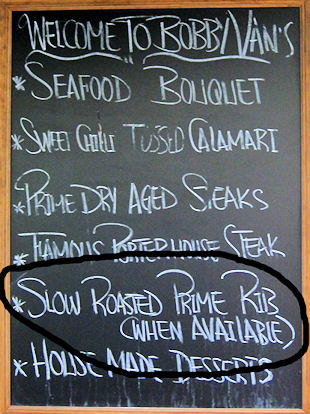 WELCOME TO BOBBY VAN'S
* SEAFOOD BOUQUET
* SWEET CHILLI TOSSED CALAMARI
* PRIME DRY AGED STEAKS
* FAMOUS PORTERHOUSE STEAK
* SLOW ROASTED PRIME RIB
(WHEN AVAILABLE)
* HOUSE MADE DESSERTS